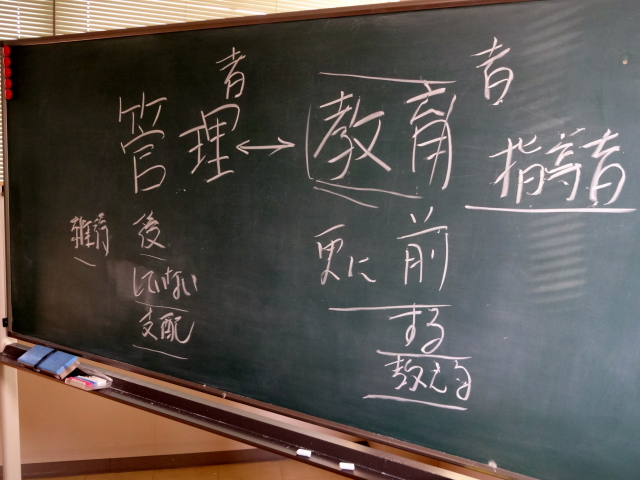 管理者 ↔ 教育者
指導者
後
更に前
していない
する
支配
教える